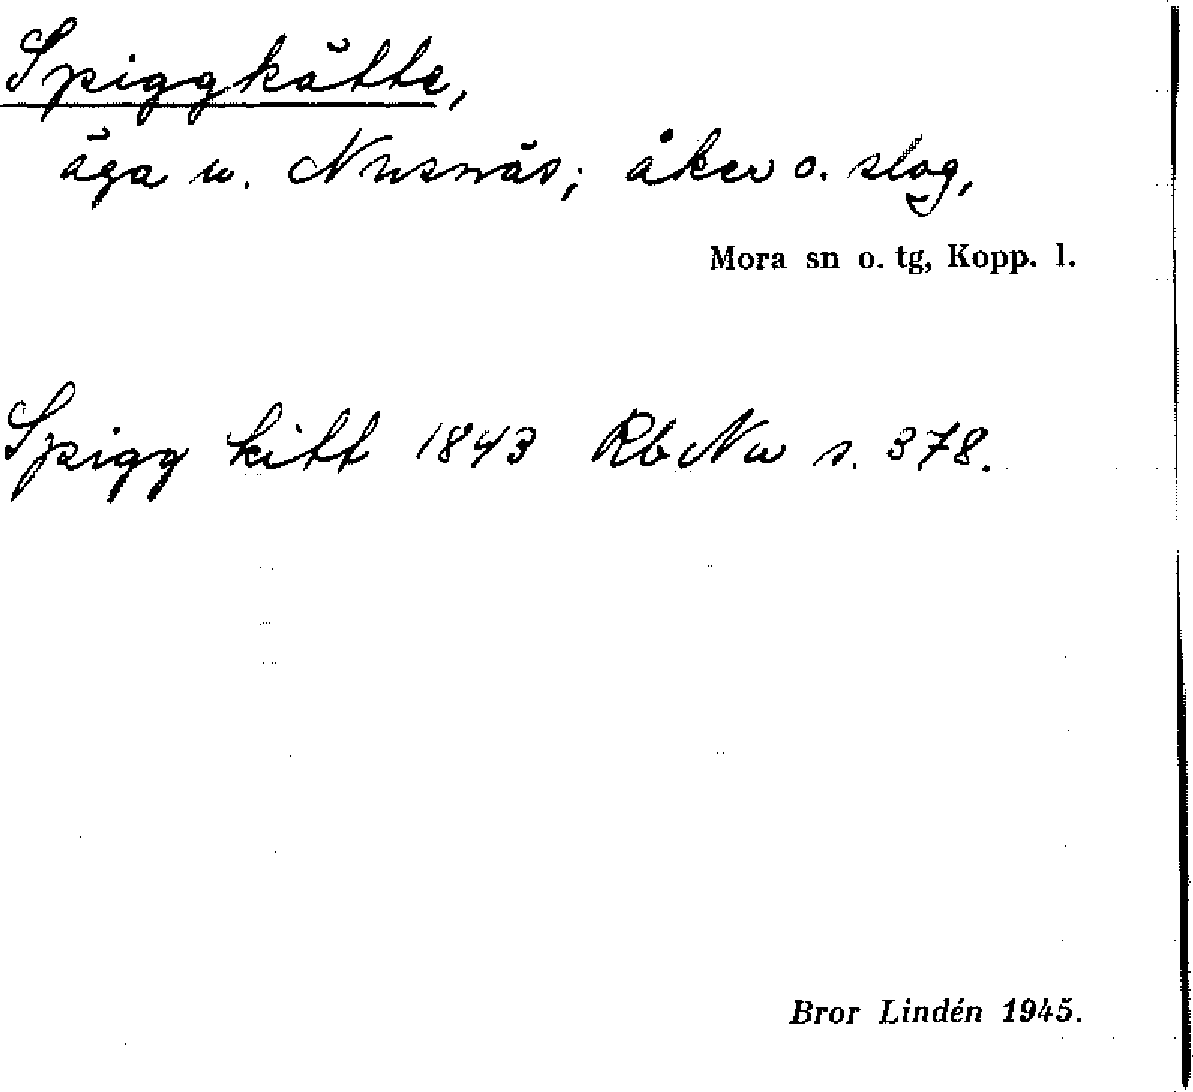 Spiggkätte,
äga u. Nusnäs; åker o. slog,
Mora sn o. tg, Kopp. l.
Spigg kitt 1843 Rb Nu s. 378.
Bror Lindén 1945.